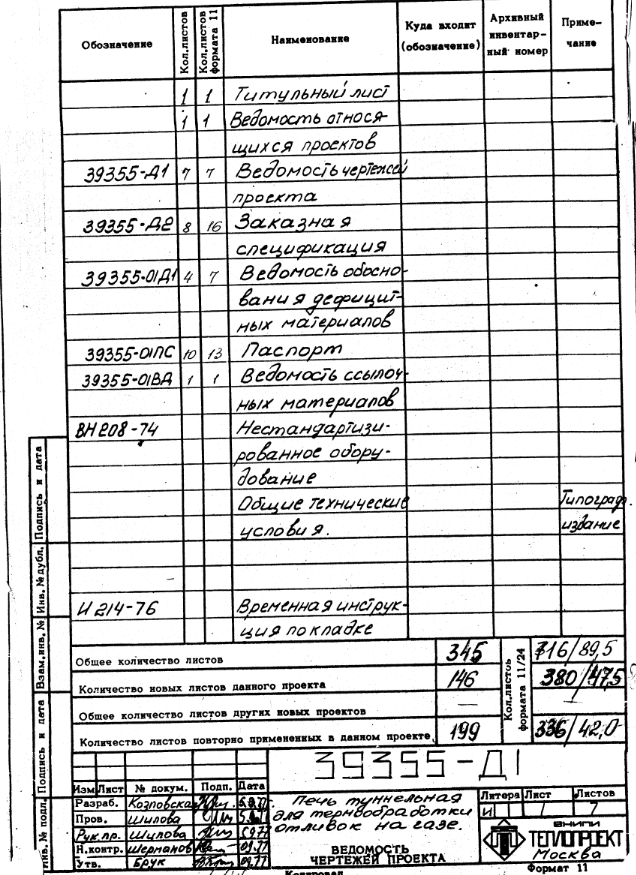 Обозначение Кол.листов Кол.листов формата 11 Наименование Куда входит (обозначение) Архивный инвентарный номер Примечание
1 1 Титульный лист
1 1 Ведомость относя-
щихся проектов
39355-Д1 7 7 Ведомость чертежей
проекта
39355-Д2 8 16 Заказная
спецификация
39355-01Д1 4 7 Ведомость обосно-
вания дефицит-
ных материалов
39355-01ПС 10 13 Паспорт
39355-01ВД 1 1 Ведомость ссылоч-
ных материалов
ВН208-74 Нестандартизи-
рованное обору-
дование
Общие технические Типограф.
условия. издание
И214-76 Временная инструк-
ция по кладке
Общее количество листов 345 716/89,5
Количество новых листов данного проекта 146 380/47,5
Общее количество листов других новых проектов — —
Количество листов повторно примененных в данном проекте 199 336/42,0
Кол.листов формата 11/24
39355-Д1
Изм Лист № докум. Подп. Дата
Разраб. Козловская
Пров. Шилова
Рук.пр. Шилова 5.9.77
Н.контр. Шерманов 09.77
Утв. Брук 09.77
Печь туннельная
для термообработки
отливок на газе.
ВЕДОМОСТЬ
ЧЕРТЕЖЕЙ ПРОЕКТА
Литера Лист Листов
И 1 7
ВНИПИ
ТЕПЛОПРОЕКТ
Москва
Копировал Формат 11
Инв. № подл.
Подпись и дата
Взам. инв. №
Инв. № дубл.
Подпись и дата